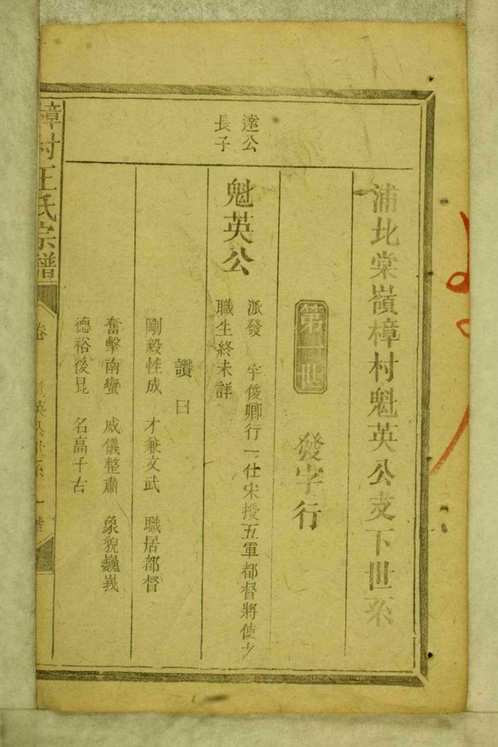 浦北棠嶺樟村魁英公支下世系
第一世
發字行
達公
長子
魁英公
派發 字俊卿行一仕宋授五軍都督將使少
職生終未詳
讚曰
剛毅性成 才兼文武 職居都督
奮擊南蠻 威儀整肅 象貌巍峩
德裕後昆 名高千古
樟村王氏宗譜
卷